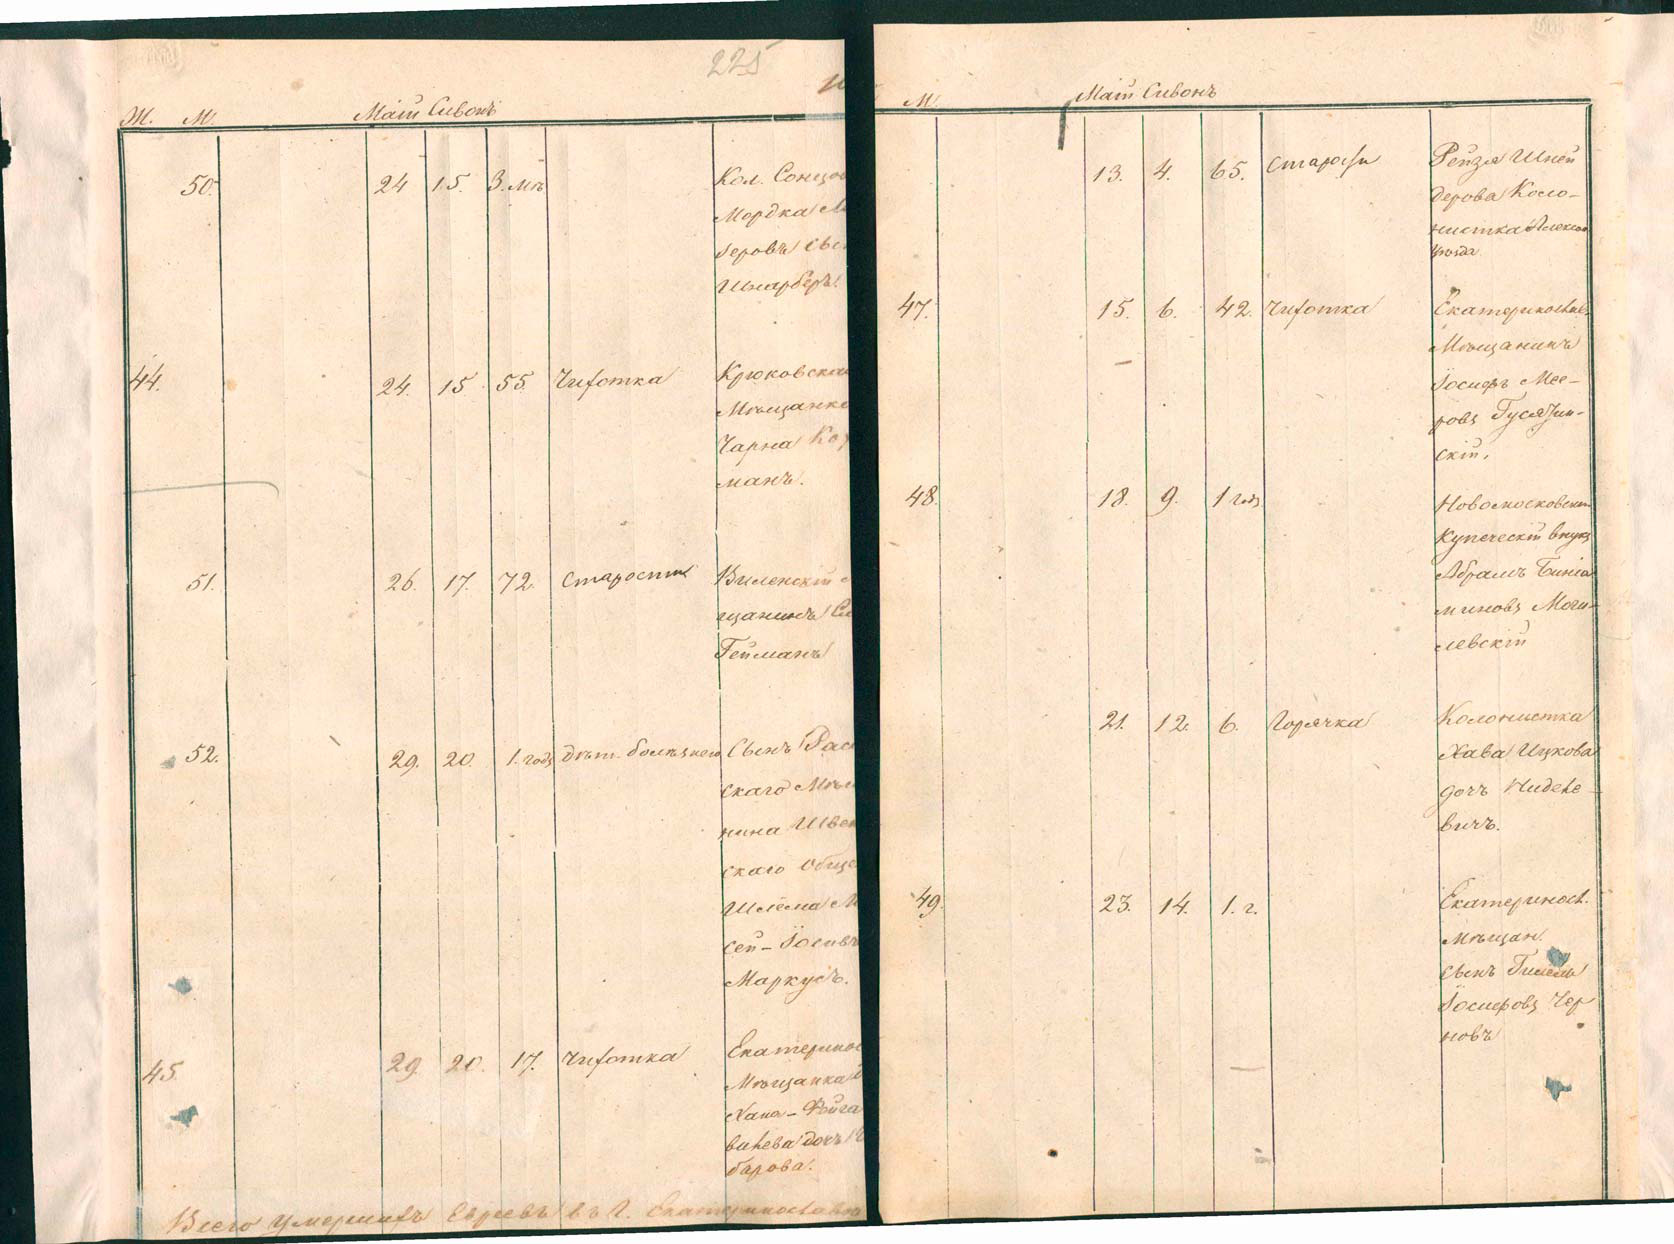 225
Ж. М. Май Сивонъ
50. 24 15. 3. мѣ Кол. Сонцов
Мордка
беровъ сын
Шнарберъ.
44. 24. 15 55. Чихотка Крюковская
Мѣщанка
Чарна
манъ.
51. 26. 17. 72. Старости Виленскій
щанинъ
Гейманъ
52. 29. 20. 1. годъ дѣт. болѣзнею Сынъ
скаго Мѣщ
нина
скаго Обще
Шлёма М
сей-Іосивъ
Маркусъ.
45 29. 20. 17. Чихотка Екатеринос
Мѣщанка
Хана-Фейга
дочь
барова.
Всего умершихъ Евреевъ въ Г. Екатеринославѣ
М. Май Сивонъ
13. 4. 65. Старости Рейзя Шней
дерова Коло-
нистка
уѣзда
47. 15. 6. 42. Чихотка Екатериносл
Мѣщанинъ
Іосифъ Мее-
ровъ Гусятин-
скій.
48. 18. 9. 1 годъ Новомосковскій
Купеческій внукъ
Абрамъ Бинiа
миновъ Моги-
левскій
21. 12. 6. Горячка Колонистка
Хава Ицкова
дочь
вичъ.
49. 23. 14. 1. г. Екатеринос.
Мѣщан.
сынъ Гилель
Іосифовъ Чер
новъ